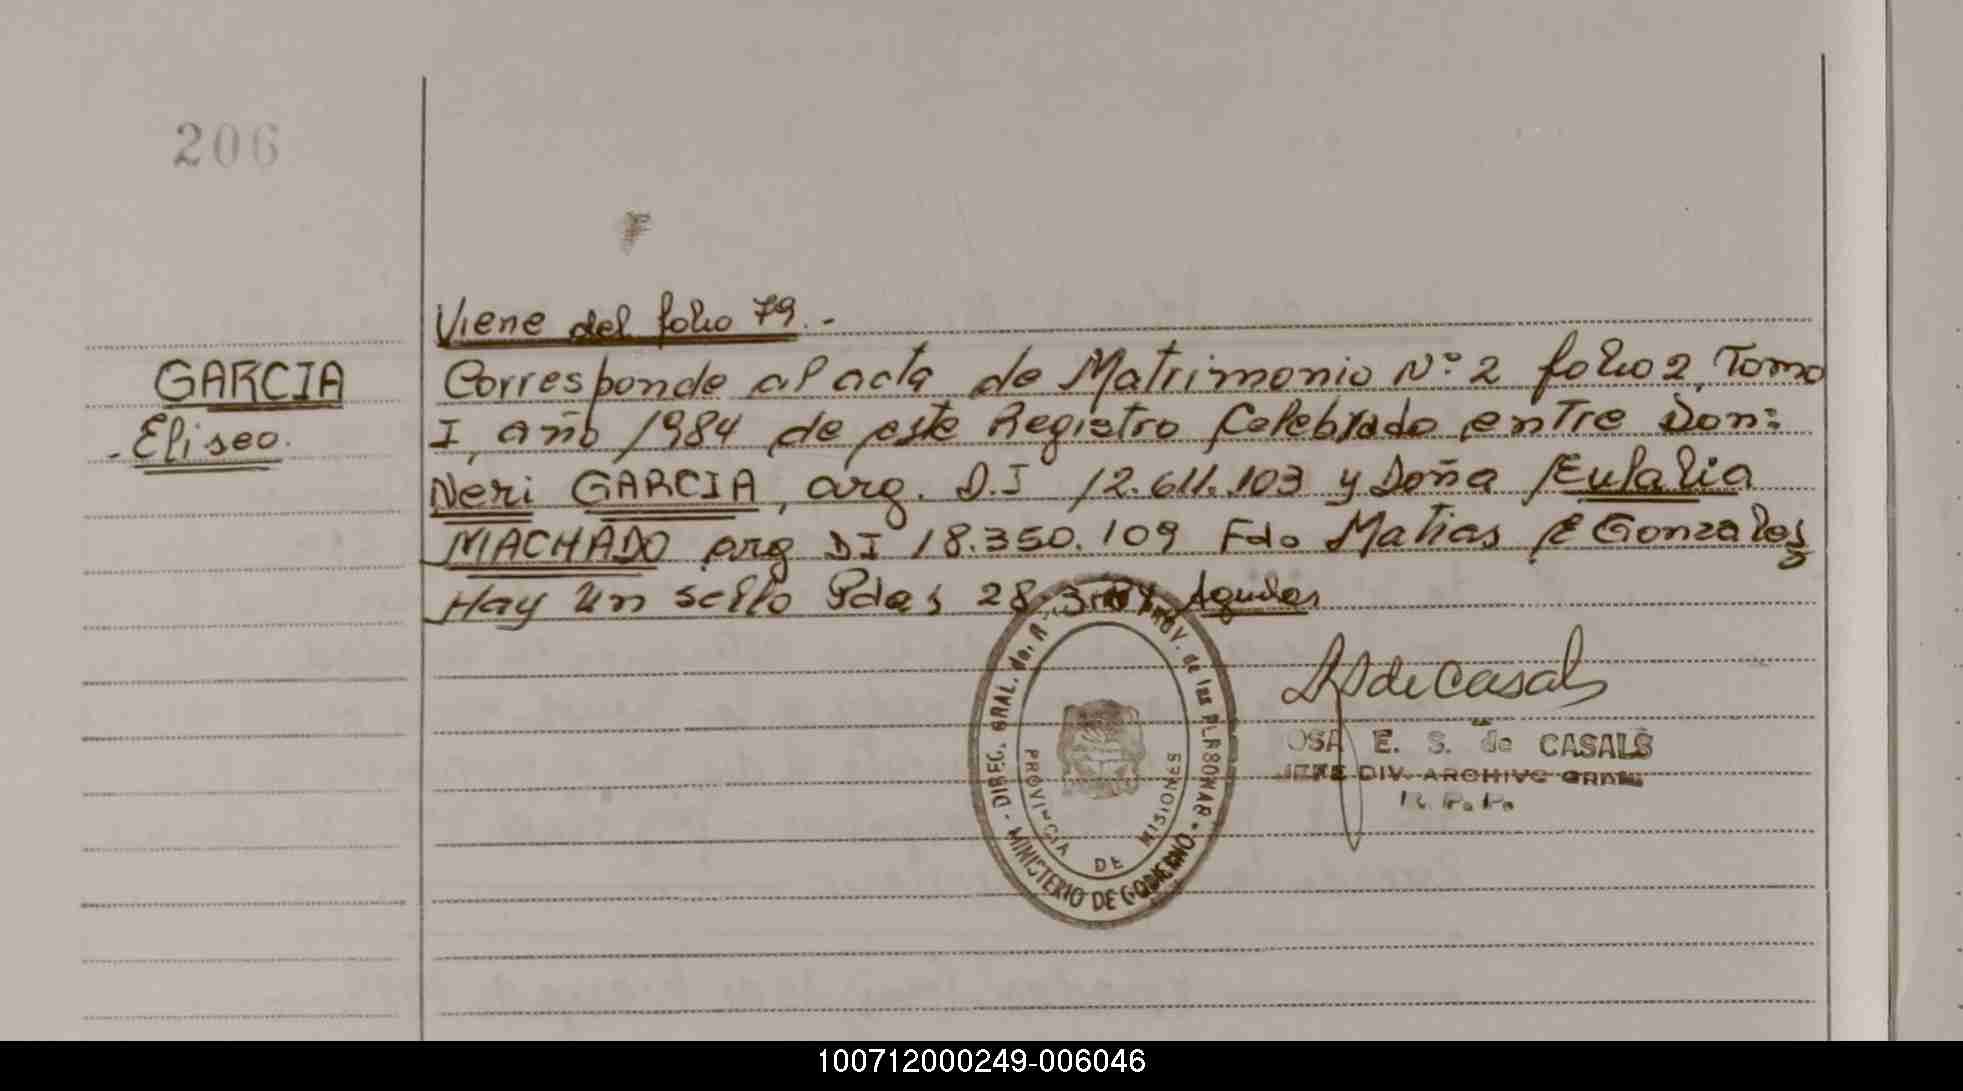 206
Viene del folio 79.-
GARCIA
-Eliseo.
Corresponde al acta de Matrimonio N° 2 folio 2, Tomo
I, año 1984 de este Registro Celebrado entre Don:
Neri GARCIA, arg. D.I 12.611.103 y Doña Eulalia
MACHADO arg DI 18.350.109 Fdo Matias E Gonzales
Hay un sello Pdas 28-3- Aguilar
DIREC. GRAL. de. R PROV. de las PERSONAS
MINISTERIO DE GOBIERNO
PROVINCIA DE MISIONES
de Casals
OSA E. S. de CASALS
JEFE DIV. ARCHIVO GRAL
R. P. P.
100712000249-006046